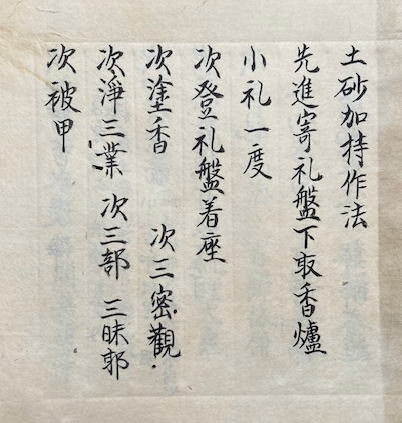 土砂加持作法
先進寄礼盤下取香爐
小礼一度
次登礼盤着座
次塗香 次三密觀
次淨三業 次三部 三昧耶
次被甲